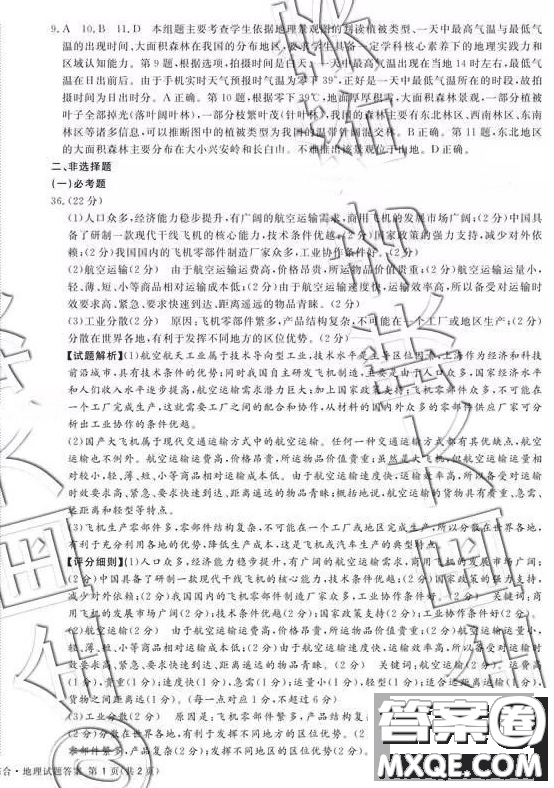 9. A 10. B 11. D 本组题主要考查学生依据地理景观图的判读植被类型、一天中最高气温与最低气
温的出现时间、大面积森林在我国的分布地区,要求学生具备一定学科核心素养下的地理实践力和
区域认知能力。第9题,根据选项,拍摄时间为白天,而一天中最高气温出现在当地14时左右,最低气
温在日出前后。由于手机实时天气预报时气温为零下39°,正好是一天中最低气温所在的时段,故拍
摄时间为日出时分。A正确。第10题,根据零下39℃,地面厚厚积雪,大面积森林景观,一部分植被
叶子全部掉光(落叶阔叶林),一部分枝繁叶茂(针叶林),我国的森林主要有东北林区、西南林区、东南
林区等诸多信息,可以推断图中的植被类型为我国的温带针阔混交林。B正确。第11题,东北地区
的大面积森林主要分布在大小兴安岭和长白山。不难推出该景观位于山地。D正确。
二、非选择题
(一)必考题
36. (22分)
(1)人口众多,经济能力稳步提升,有广阔的航空运输需求,商用飞机的发展市场广阔;(2分)中国具
备了研制一款现代干线飞机的核心能力,技术条件优越;(2分)国家政策的强力支持,减少对外依
赖;(2分)我国国内的飞机零部件制造厂家众多,工业协作条件好。(2分)
(2)航空运输(2分) 由于航空运输运费高,价格昂贵,所运物品价值贵重;(2分)航空运输运量小,
轻、薄、短、小等商品相对运输成本低;(2分)由于航空运输速度快,运输效率高,所以备受对运输时
效要求高、紧急、要求快速到达、距离遥远的物品青睐。(2分)
(3)工业分散(2分) 原因:飞机零部件繁多,产品结构复杂,不可能在一个工厂或地区生产;(2分)
分散在世界各地,有利于发挥不同地方的区位优势。(2分)
【试题解析】(1)航空航天工业属于技术导向型工业,技术水平是主导区位因素,上海作为经济和科技
前沿城市,具有技术条件的优势;同时我国自主研发飞机制造,主要是由于人口众多,国家经济水平
和人们收入水平逐步提高,航空运输需求潜力巨大;加上国家政策支持;飞机零部件众多,不可能在
一个工厂完成生产,这就需要工厂之间的配合和协作,从材料的国内外众多的零部件供应厂家可分
析出工业协作的条件优越。
(2)国产大飞机属于现代交通运输方式中的航空运输。任何一种交通运输方式都有其优缺点,航空
运输也不例外。航空运输运费高,价格昂贵,所运物品价值贵重;虽然是大飞机,但航空运输运量相
对较小,轻、薄、短、小等商品相对运输成本低。由于航空运输速度快,运输效率高,所以备受对运输
时效要求高、紧急、要求快速到达、距离遥远的物品青睐;概括地说,航空运输的货物具有贵重、急需、
长距离和轻型等特点。
(3)飞机生产零部件多,零部件结构复杂,不可能在一个工厂或地区完成生产;所以分散在世界各地,
有利于充分利用各地的优势,降低生产成本,这是飞机或汽车生产的典型特点。
【评分细则】(1)人口众多,经济能力稳步提升,有广阔的航空运输需求,商用飞机的发展市场广阔;
(2分)中国具备了研制一款现代干线飞机的核心能力,技术条件优越;(2分)国家政策的强力支持,
减少对外依赖;(2分)我国国内的飞机零部件制造厂家众多,工业协作条件好。(2分) 关键词;商
用飞机的发展市场广阔(2分);技术条件优越(2分);国家政策支持(2分);工业协作条件好(2分)。
(2)航空运输(2分) 由于航空运输运费高,价格昂贵,所运物品价值贵重;(2分)航空运输运量小,
轻、薄、短、小等商品相对运输成本低;(2分)由于航空运输速度快,运输效率高,所以备受对运输时
效要求高、紧急、要求快速到达、距离遥远的物品青睐。(2分) 关键词:航空运输(2分),运费高
(1分),贵重(1分);速度快(1分),急需(1分);运量小(1分),轻型(1分);适合远距离运输(1分),
货物之间距离远(1分)。(每一点对应1分,不超过6分)
(3)工业分散(2分) 原因是:飞机零部件繁多,产品结构复杂,
分散在世界各地,有利于发挥不同地方的区位优势。(2分)
产品复杂(2分);发挥不同地区的区位优势(2分)。
综合·地理试题答案 第1页(共2页)
答案卷
MXQE.COM